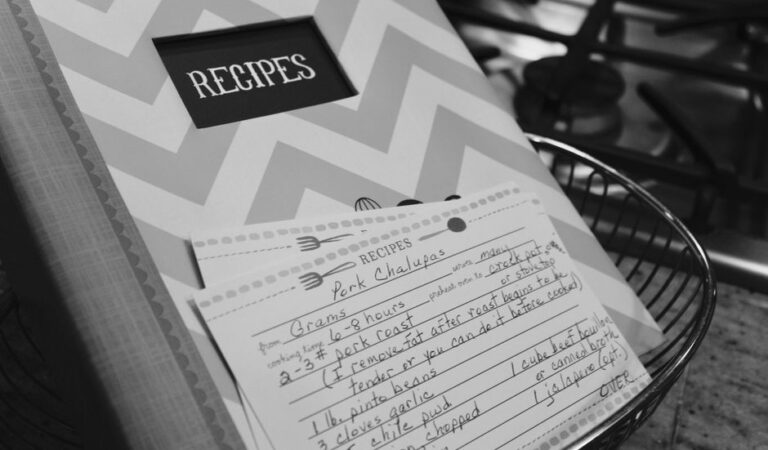 RECIPES
RECIPES
Pork Chalupas
from Grams serves many
cooking time 6-8 hours preheat oven to crock pot or stove top
2-3# pork roast
(I remove fat after roast begins to be
tender or you can do it before cooked)
1 lb. pinto beans
3 cloves garlic 1 cube beef bouillon
chile pwd or canned broth
chopped 1 jalapeno (opt.)
OVER